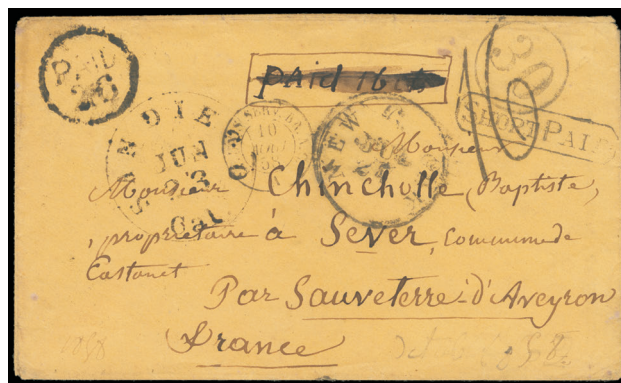 PAID
26
PAId 16
30
SHORT PAID
10
SAN DIEGO
JUN
23
Cal
NEW
Monsieur
Monsieur Chincholle, Baptiste,
, propriétaire à Sever, Commune de
Castanet
Par Sauveterre d'Aveyron
France